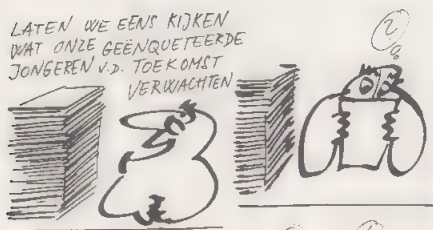 LATEN WE EENS KIJKEN
WAT ONZE GEËNQUETEERDE
JONGEREN V.D. TOEKOMST
VERWACHTEN
?